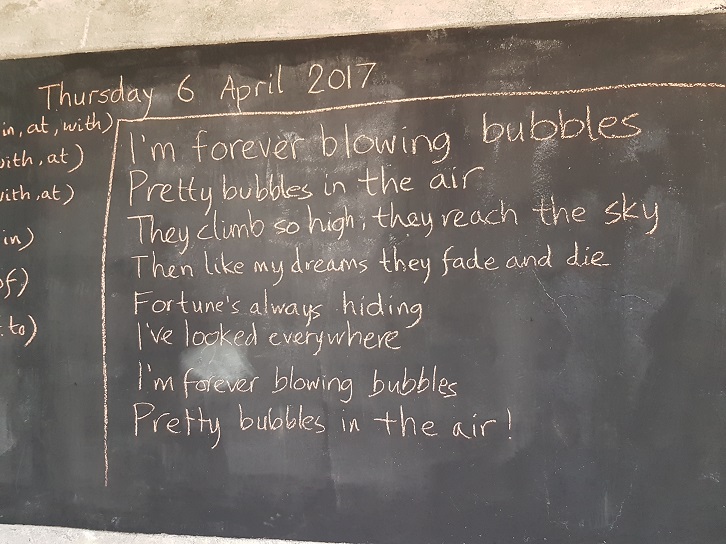 Thursday 6 April 2017
in, at, with)
with, at)
with, at)
in)
of)
to)
I'm forever blowing bubbles
Pretty bubbles in the air
They climb so high, they reach the sky
Then like my dreams they fade and die
Fortune's always hiding
I've looked everywhere
I'm forever blowing bubbles
Pretty bubbles in the air!